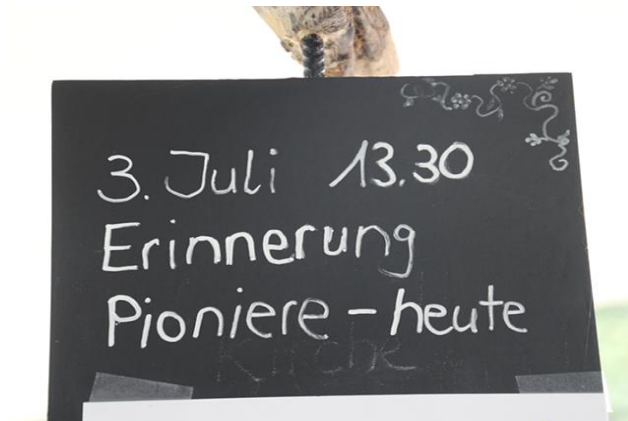 3. Juli 13.30
Erinnerung
Pioniere – heute
Küche